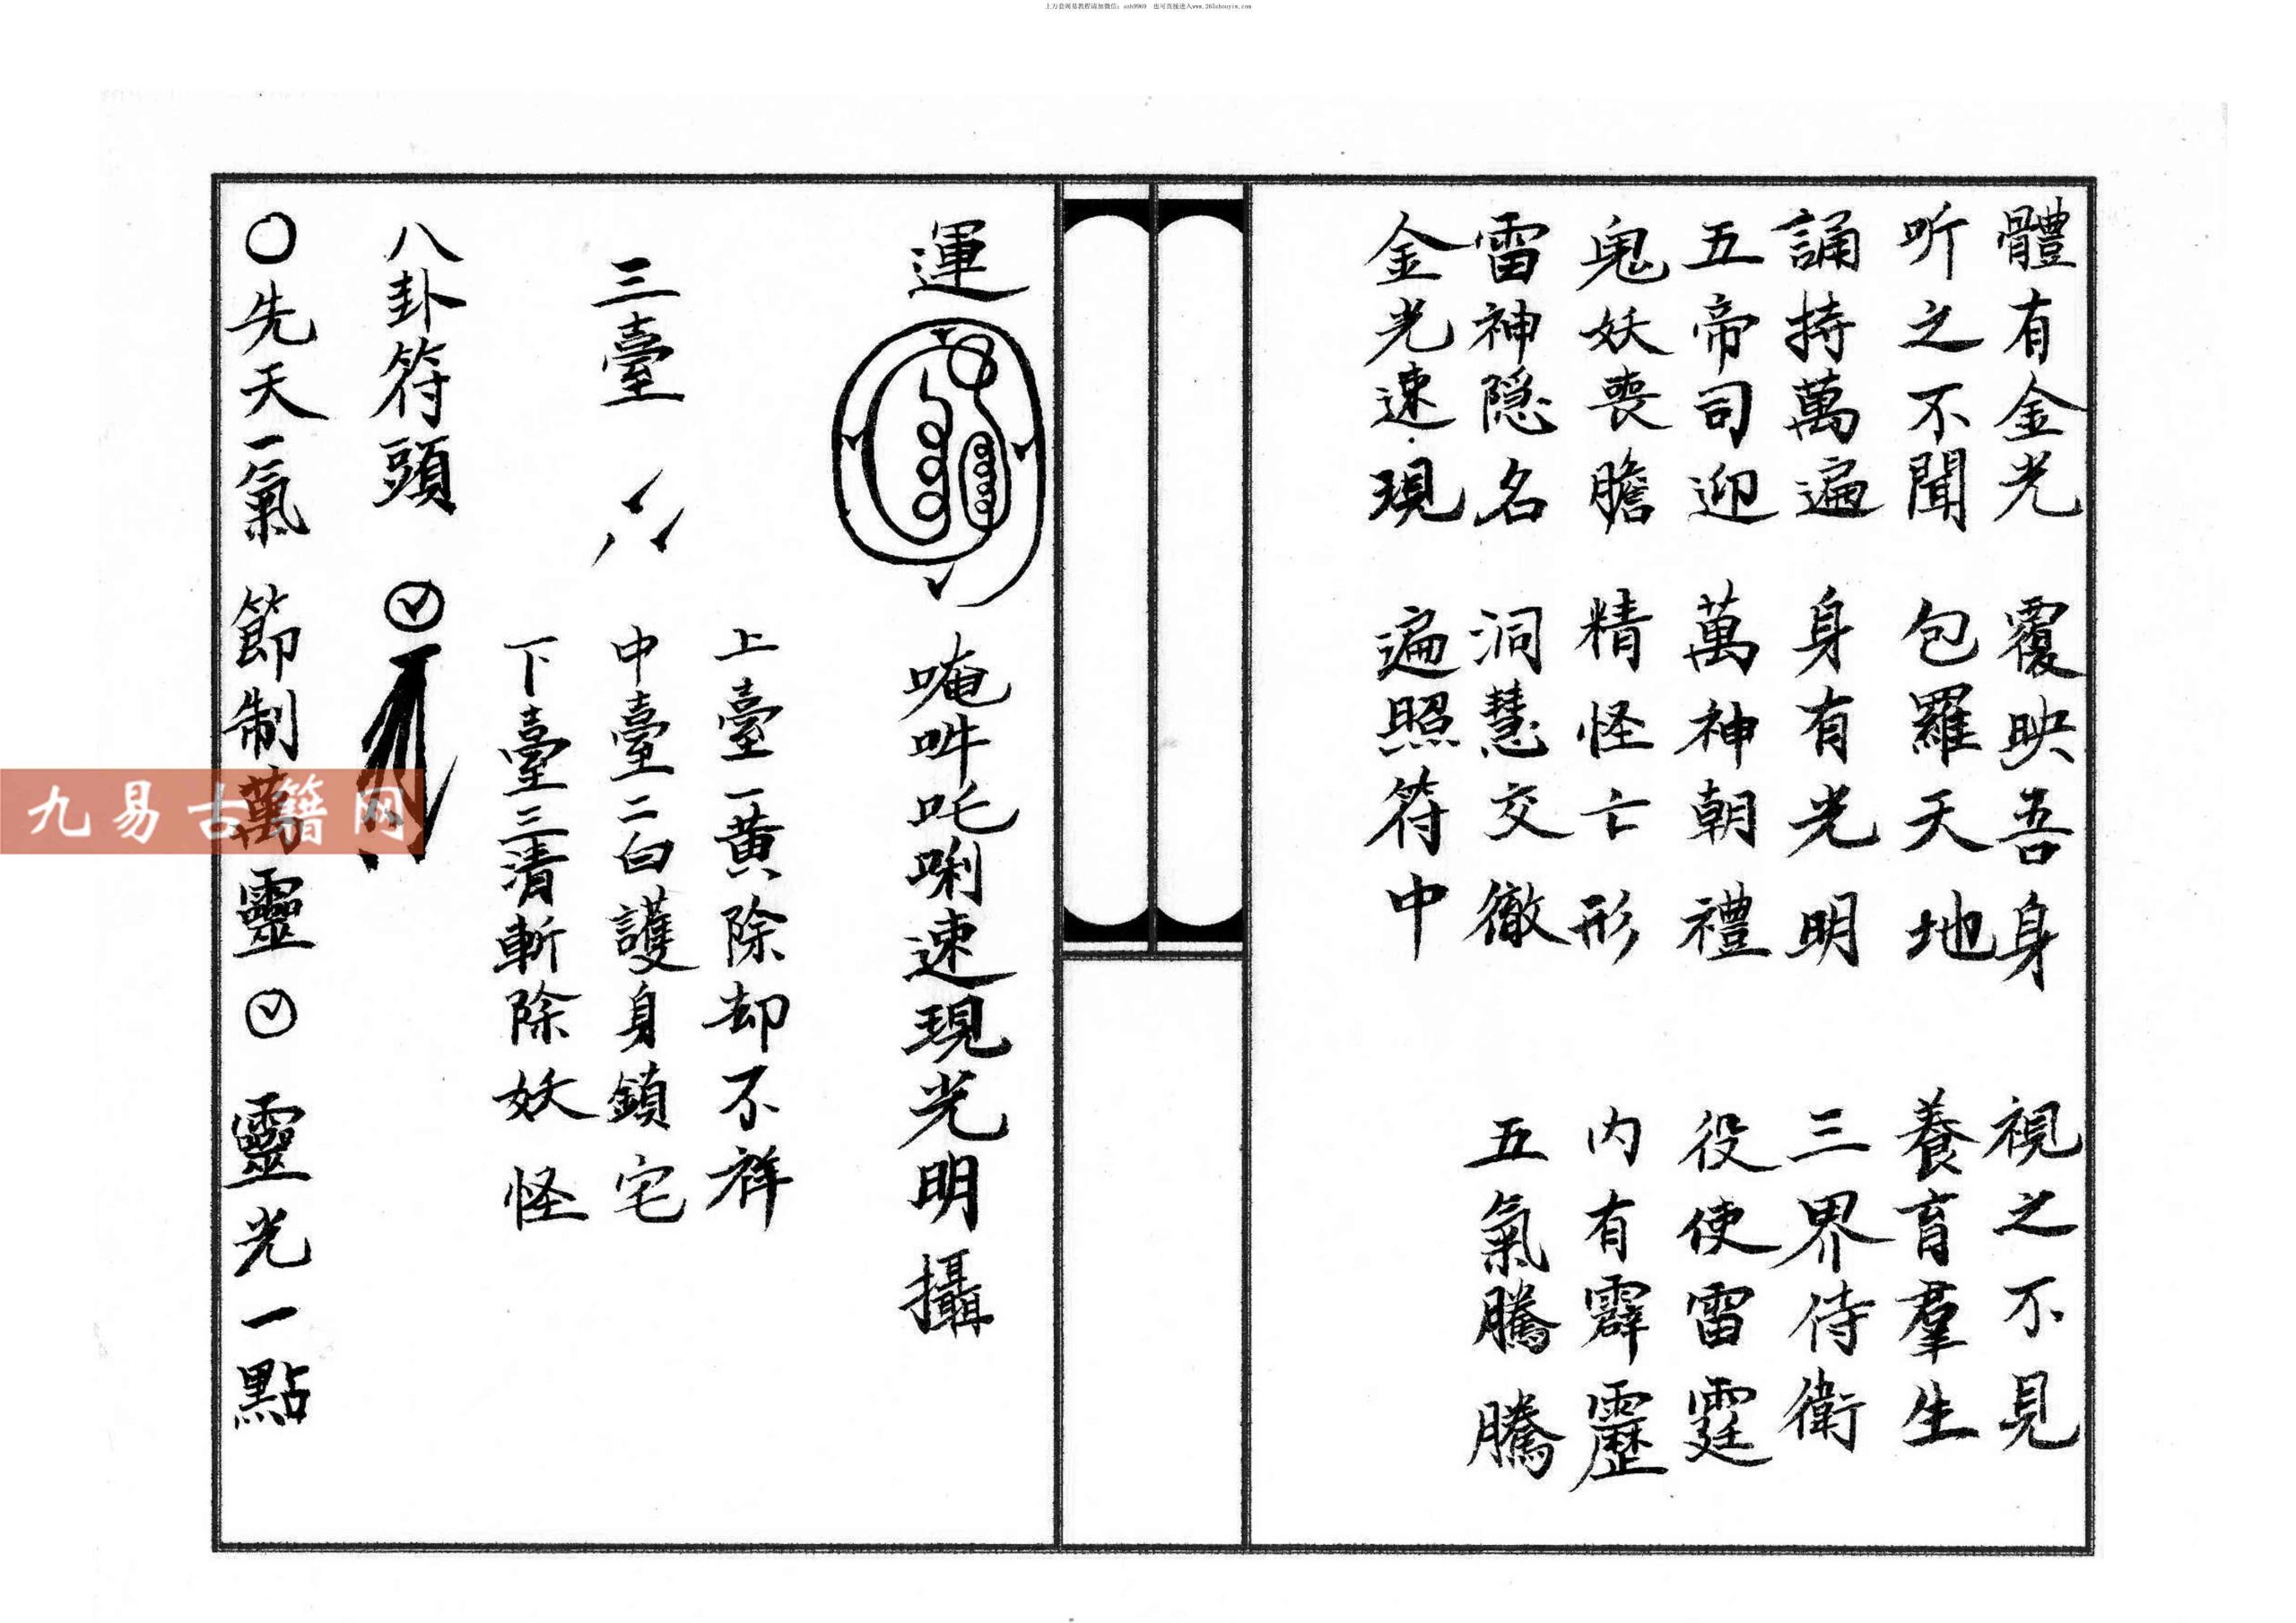 體有金光 覆映吾身 視之不見
听之不聞 包羅天地 養育羣生
誦持萬遍 身有光明 三界侍衛
五帝司迎 萬神朝禮 役使雷霆
鬼妖喪膽 精怪亡形 内有霹靂
雷神隐名 洞慧交徹 五氣騰騰
金光速現 遍照符中
運 唵吽吒唎速現光明攝
三臺
上臺一黄除却不祥
中臺二白護身鎮宅
下臺三清斬除妖怪
八卦符頭
先天一氣 節制萬靈 靈光一點
九易古籍网